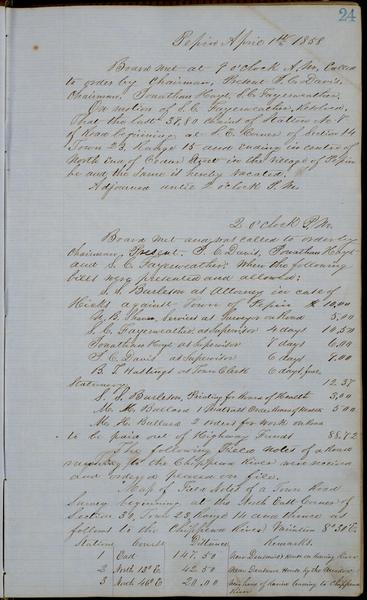 24
Pepin April 1st 1858
Board met at 9 o'clock A.M. Called
to order by Chairman, Present S. C. Davis,
Chairman, Jonathan Hoyt, S. C. Fayerweather.
On motion of S. C. Fayerweather, Resolved,
That the last 37,80 chains of Station No 8
of Road beginning at S. E. Corner of Section 14
Town 23. Range 15 and ending in centre of
North End of Street in the village of Pepin
be and the same is hereby vacated.
Adjourned until 2 o'clock P.M.
2 o'clock P.M.
Board met and was called to order by
Chairman, Present. S. C. Davis, Jonathan Hoyt
and S. C. Fayerweather when the following
bills were presented and allowed:
S. S. Burleson as Attorney in case of
Hicks against Town of Pepin $ 10,00
Services as Surveyor on Road 5,00
S. C. Fayerweather as Supervisor 7 days 10,50
Jonathan Hoyt as Supervisor 4 days 6,00
S. C. Davis as Supervisor 6 days 9,00
B. F. Hastings as Town Clerk 6 days
Stationery 12,37
S. S. Burleson, Printing for of Health 3,00
M. M. Ballard 5 00
M. M. Ballard 2 orders for work on Road
to be paid out of Highway Funds 88,72
The following Field Notes of a Road
to the Chippewa River was received
and ordered placed on file.
Map of Field Notes of a Town Road
Survey beginning at the South East Corner of
Section Town 23, Range 14 and thence as
follows to the Chippewa River Variation 8° 30' E.
Station Course Distance Remarks.
1 East 147,50 House on leaving River
2 North 13° E. 42,50 House by the
3 North 46° E. 20,00 running to Chippewa
River